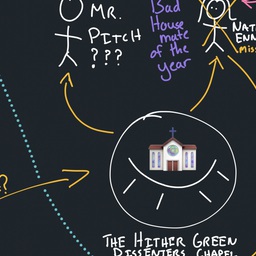 MR.
PITCH
???
Bad
House
mate
of the
year
?
THE HITHER GREEN
DISSENTERS CHAPEL